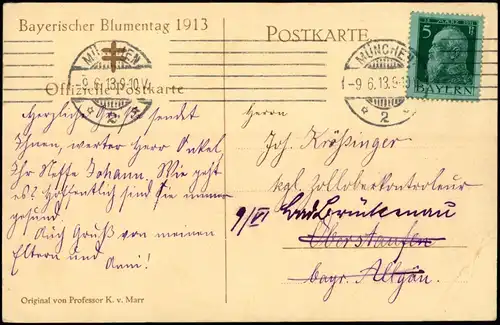 Bayerischer Blumentag 1913
POSTKARTE
MÜNCHEN
-9.6.13.9-10V
* 2 *
MÜNCHEN
1-9.6.13.9-10
* 2
5 Pf
BAYERN
Offizielle Postkarte
Herzliche Grüße sendet
Ihnen, werter Herr Onkel
Ihr Neffe Johann. Wie geht
es? Hoffentlich sind Sie immer
gesund.
Auch Gruß von meinen
Eltern und
Anni!
Herrn
Joh.
kgl. Zolloberkontroleur
9/VI Bad Brückenau
Oberstaufen
bayr. Allgäu.
Original von Professor K. v. Marr